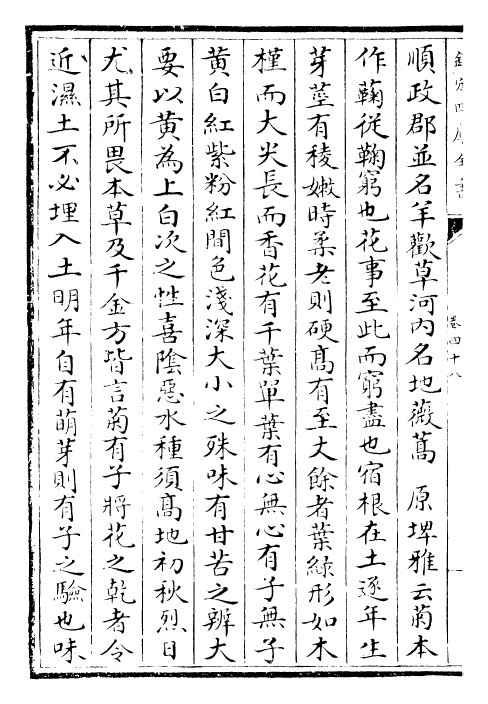 欽定四庫全書
卷四十八
順政郡並名羊歡草河內名地薇蒿　原埤雅云菊本
作蘜從鞠窮也花事至此而窮盡也宿根在土逐年生
芽莖有稜嫩時柔老則硬髙有至丈餘者葉綠形如木
槿而大尖長而香花有千葉單葉有心無心有子無子
黄白紅紫粉紅間色淺深大小之殊味有甘苦之辨大
要以黄為上白次之性喜陰惡水種須髙地初秋烈日
尤其所畏本草及千金方皆言菊有子將花之乾者令
近濕土不必埋入土明年自有萌芽則有子之驗也味